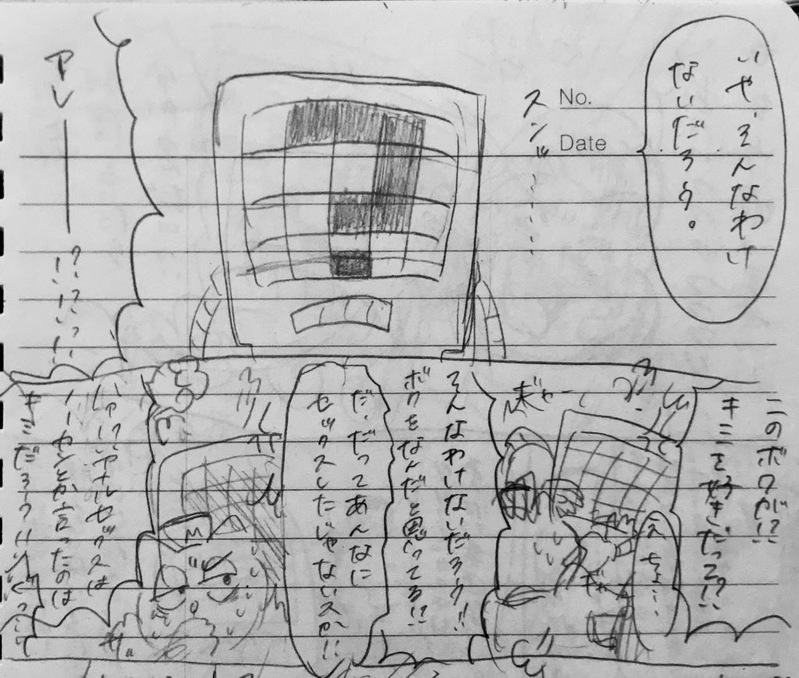 いや、そんなわけ
ないだろう。
No.
Date
スンッ……
アレ――――
!?!?!?
このボクが!?
キミをすきだって!?
え ちょ…
ぎゃー
そんなわけないだろう!!
ボクをなんだと思ってる!?
だ、だってあんなに
セックスしたじゃないスか!!
はァ!?アナルセックスは
ノーカンとか言ったのは
キミだろう
M